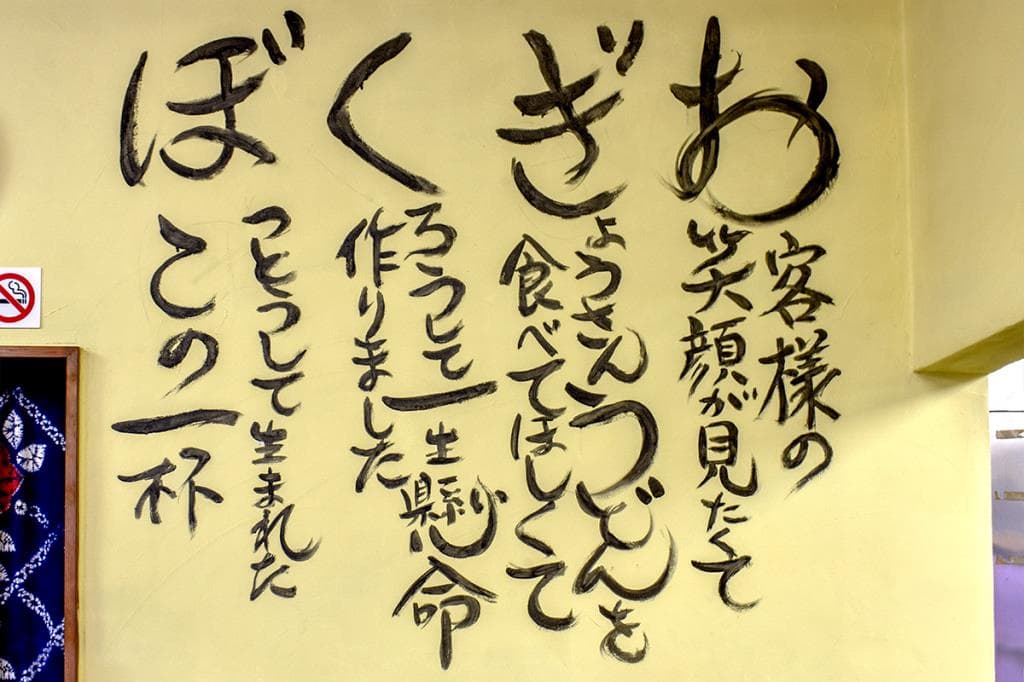 お客様の
笑顔が見たくて
ぎょうさんうどんを
食べてほしくて
くろうして一生懸命
作りました
ぼっとうして生まれた
この一杯